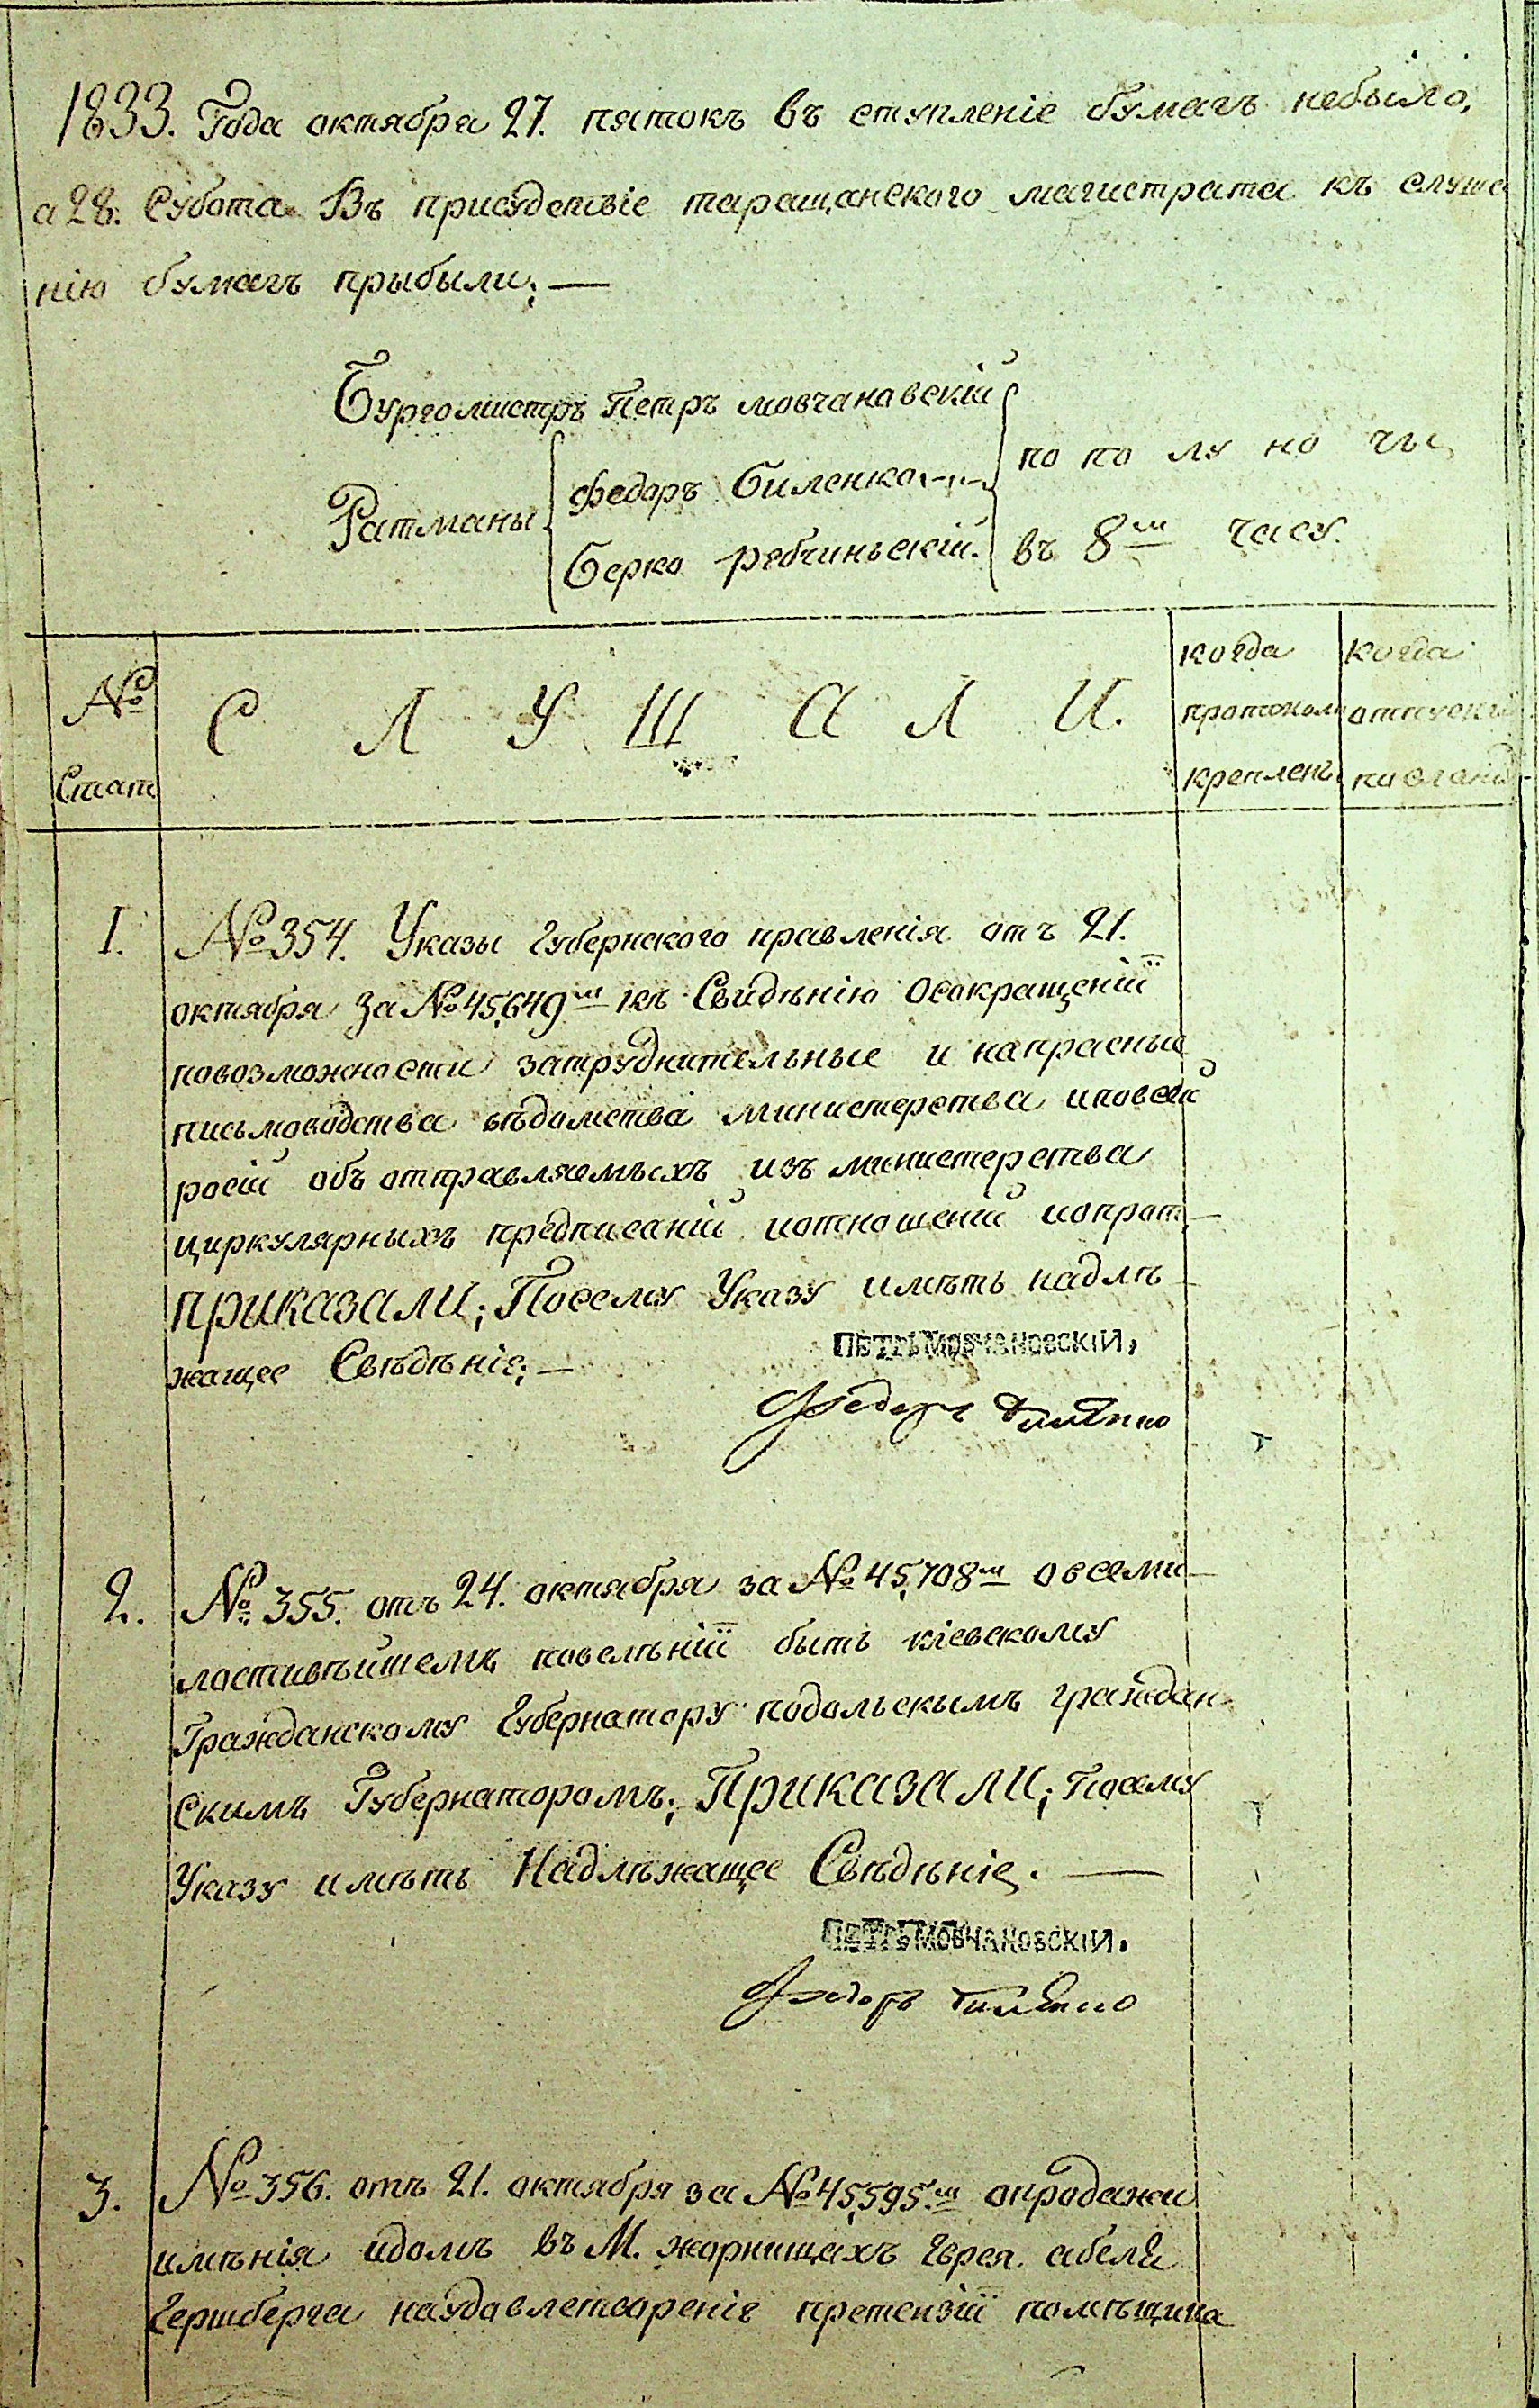 1833. Года октября 27. пятокъ въ ступленіе бумагъ небыло,
а 28. Субота Въ присудствіе таращанского магистрата къ слуша
нію бумагъ прыбыли; —
Бургомистръ Петръ мовчановскій
Ратманы
федоръ Биленко
Берко рябчиньскій.
по по лу но чы
въ 8м часу.
№
Стат
С Л У Ш А Л И.
когда
протоколъ
крепленъ
когда
отпускъ
1. №354. Указы Губернского правленія отъ 21.
октября за №45,649м къ Свидѣнію Осокращеніи
повозможности затруднительные и напрасные
письмоводства вѣдомства министерства иповсей
росіи объ отправляемыхъ изъ министерства
циркулярныхъ предписаній иотношеній ипрот
ПРИКАЗАЛИ; Посему Указу имѣть надлѣ
жащее Свѣдѣніе; —
ПЕТРЪ МОВЧАНОВСКІЙ,
Федоръ Биленко
2. № 355. отъ 24. октября за №45,708м овсеми
лостивѣйшемъ повелѣніи быть кіевскому
Гражданскому Губернатору подольскымъ граждан
скимъ Губернаторомъ; ПРИКАЗАЛИ; Посему
Указу имѣть Надлѣжащее Свѣдѣніе. —
ПЕТРЪ МОВЧАНОВСКІЙ.
Федоръ Биленко
3. №356. отъ 21. октября за №45,595.м опродажи
имѣнія идомъ въ М. жорнищахъ Еврея абеля
Гершберга наудовлетвореніе претензіи помѣщика